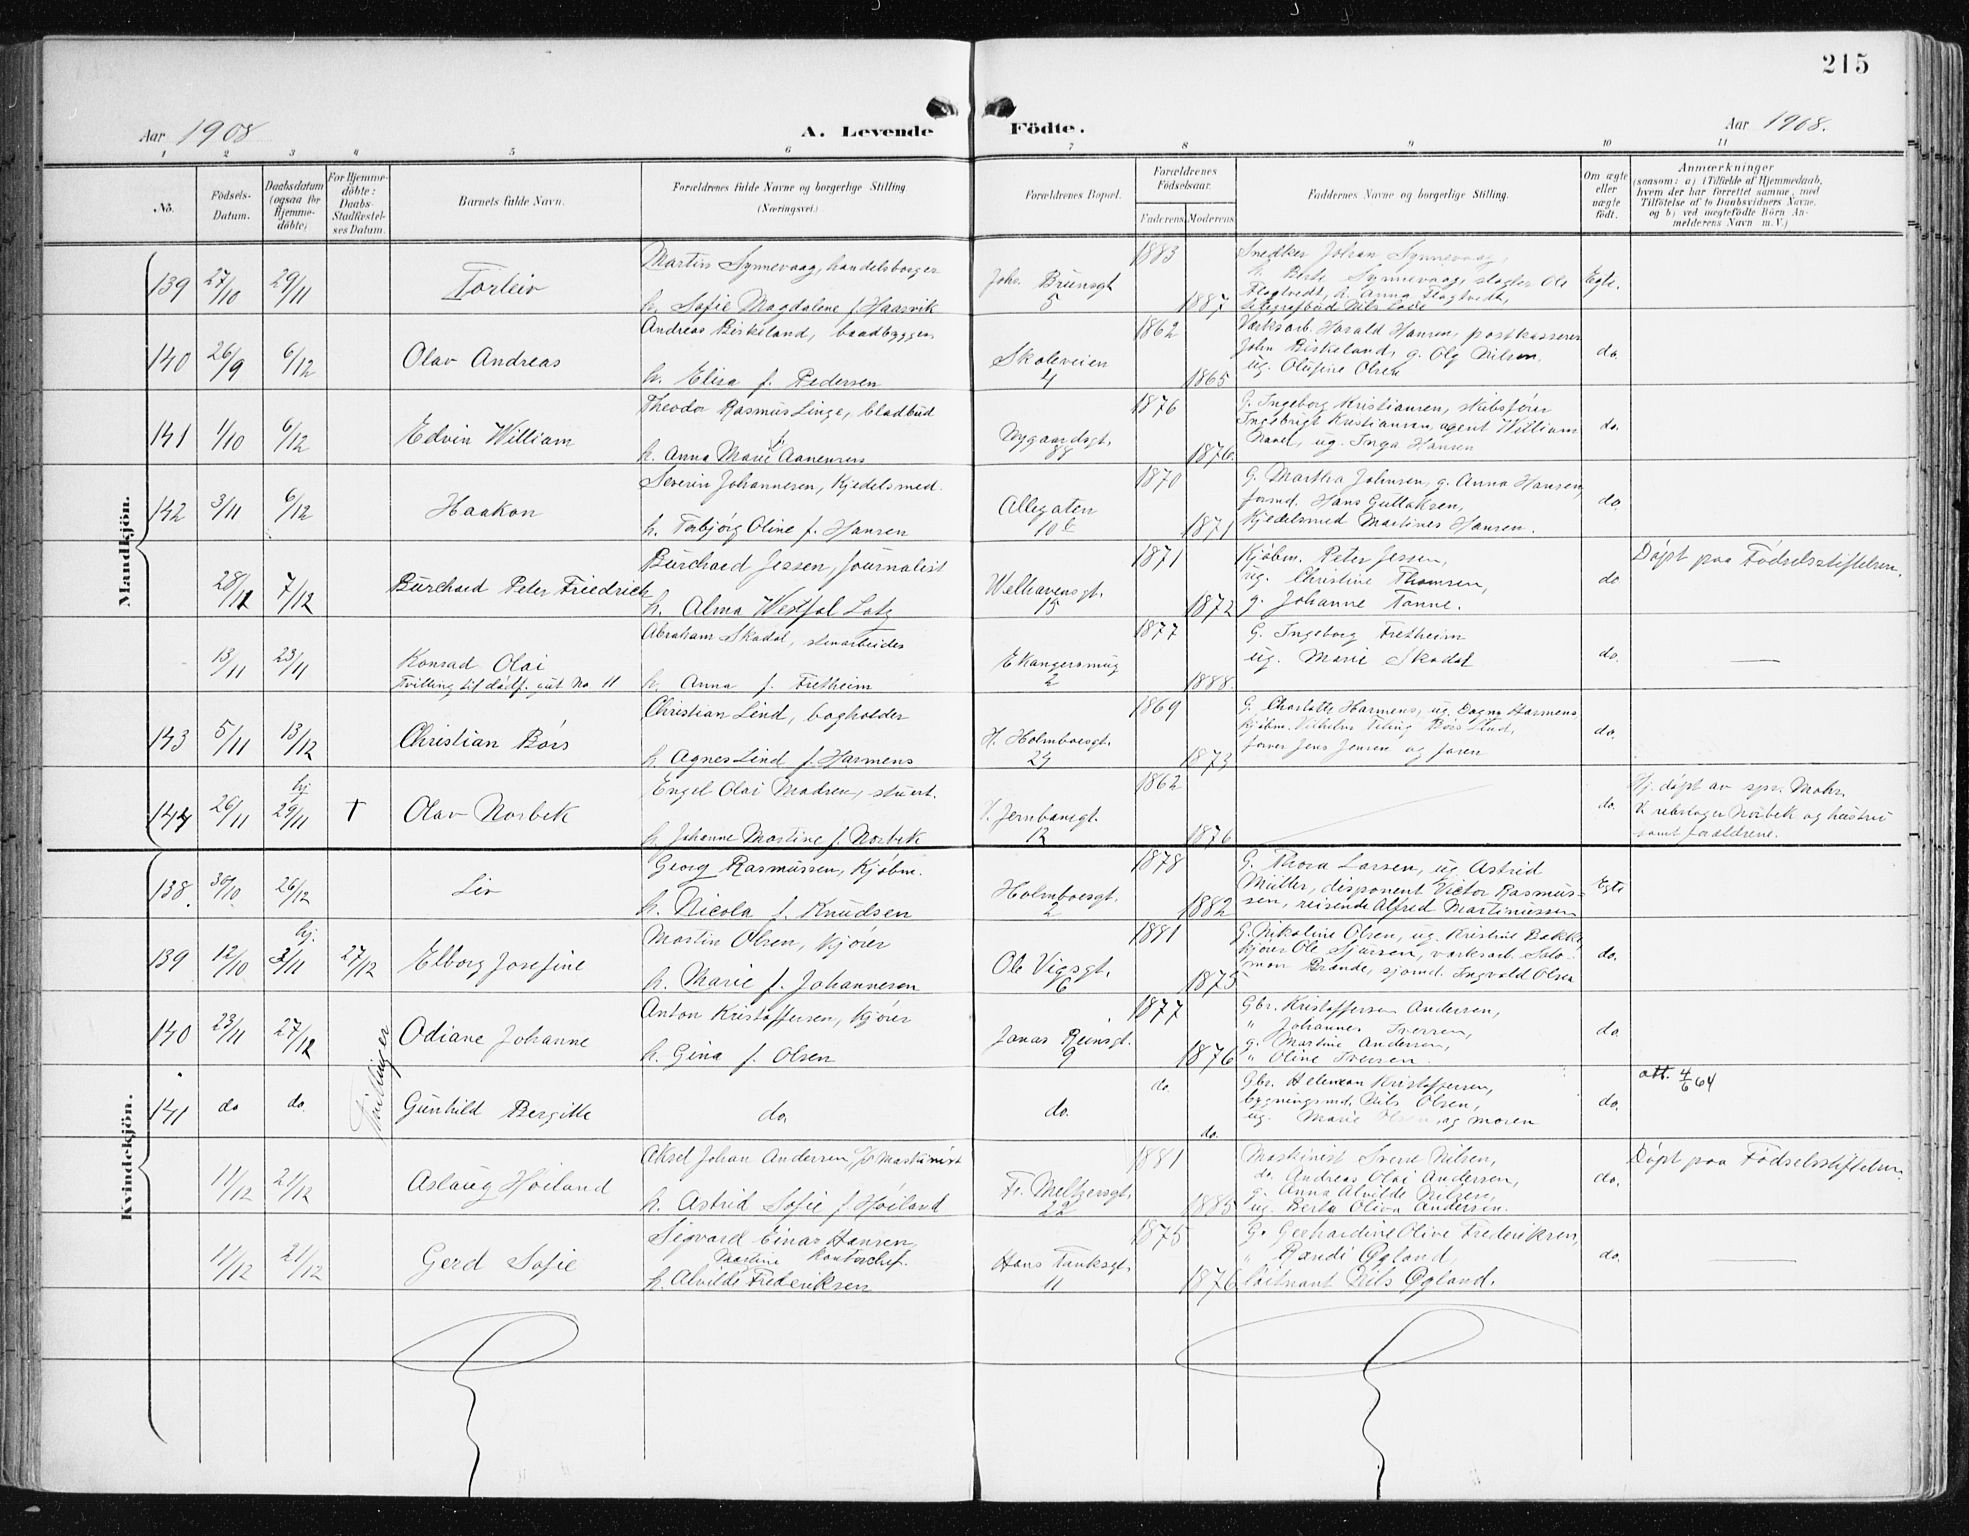 215
Aar 1908
A. Levende Födte.
Aar 1908.
1 2 3 4 5 6 7 8 9 10 11
No.
Födsels-Datum.
Daabsdatum (ogsaa for Hjemme-döbte)
For Hjemme-döbte: Daabs-Stadfæstel-ses Datum.
Barnets fulde Navn.
Forældrenes fulde Navne og borgerlige Stilling. (Næringsvei.)
Forældrenes Bopæl.
Forældrenes Födselsaar.
Faderens Moderens
Faddernes Navne og borgerlige Stilling.
Om ægte eller uægte födt.
Anmærkninger
(saasom: a) i Tilfælde af Hjemmedaab, hvem der har forrettet samme, med Tilföielse af to Daabsvidners Navne, og b) ved uægtefödte Börn An-melderens Navn m.V.)
Mandkjön.
139 27/10 29/11 Torleiv
Martin Synnevaag, handelsborger
h. Sofie Magdalene f. Haasvik
Johs. Brunsgt. 5
1883 1887
Snedker Johan Synnevaag,
h. Berte Synnevaag, slagter Ole
Flagtvedt, h. Anna Flagtvedt,
Egte.
140 26/9 6/12 Olav Andreas
Andreas Birkeland, baadbygger
h. Elisa f. Pedersen
Skoleveien 4
1862 1865
Verksarb. Harald Hansen, postkasserer
John Birkeland, g. Olg Nilsen.
ug. Olufine Olsen
do.
141 1/10 6/12 Edvin William
Theodor Rasmus Linge, bladbud
h. Anna Marie f. Aanensen
Nygaardsgt. 88
1876 1876
G. Ingeborg Kristiansen, skibsfører
Ingebrigt Kristiansen, agent William
ug. Inga Hansen
do.
142 3/11 6/12 Haakon
Severin Johannesen, Kjedelsmed.
h. Torbjørg Oline f. Hansen
Allegaten 10 b
1870 1871
G. Martha Johnsen, g. Anna Hansen,
formd. Hans Guttaksen,
Kjedelsmed Martines Hansen.
do.
28/11 7/12 Burchard Peter Friedrich
Burchard Jessen, journalist
h. Alma Westfal Lotz
Welhavensgt. 15
1871 1872
Kjøbm. Peter Jessen,
ug. Christine Thomsen,
g. Johanne Tonne.
do
Døpt paa Fødselsstiftelsen.
13/11 23/11 Konrad Olai
Tvilling til dødf. gut No. 11
Abraham Skadal, stenarbeider
h. Anna f. Fretheim
Ekangersmug 2
1877 1888.
G. Ingeborg Fretheim
ug. Marie Skadal
do.
143 5/11 13/12 Christian Børs
Christian Lind, bogholder
h. Agnes Lind f. Harmens
H. Holmboesgt. 24
1869 1873
G. Charlotte Harmens, ug. Dagny Harmens
kjøbm. Vilhelm Børs Lind,
farver Jens Jensen og faren
do.
144 26/11 hj. 29/11 † Olav Norbek
Engel Olai Madsen, stuert.
h. Johanne Martine f. Norbek
V. Jernbanegt. 12
1862 1876
do.
Hj. døpt av spr. Mohr.
V. rebslager Norbek og hustru
samt forældrene.
Kvindekjön.
138. 30/10 26/12 Liv
Georg Rasmussen, Kjøbm.
h. Nicola f. Knudsen
Holmboesgt. 2
1878 1882
G. Thora Larsen, ug Astrid
Müller, disponent Victor Rasmus-
sen, reisende Alfred Martiniussen
Egte
139 12/10 hj. 3/11 27/12 Elborg Josefine
Martin Olsen, kjører
h. Marie f. Johannesen
Ole Vigsgt. 6
1881 1873
G. Nikoline Olsen, ug. Kristine Bakke,
kjører Ole Sjursen, verksarb. Salo-
mon Brande, sjømd. Ingvald Olsen
do.
140 23/11 27/12 Odiane Johanne
Anton Kristoffersen, kjører
h. Gina f. Olsen
Jonas Reinsgt. 9
1877 1876
Gbr. Kristoffersen Andersen,
" Johannes Iversen,
g. Martine Andersen,
" Oline Iversen.
do.
Tvillinger
141 do do. Gunhild Bergitte
do.
do.
do. do.
Gbr. Kristoffersen,
bygningsmd. Nils Olsen,
ug. Marie Olsen, og moren
do.
att. 4/6 64
11/12 21/12 Aslaug Høiland
Aksel Johan Andersen, Maskinist
h. Astrid Sofie f. Høiland
Fr. Meltzersgt. 22
1881 1885
Maskinist Sverre Nilsen,
do. Andreas Olai Andersen,
g. Anna Alvilde Nilsen,
ug. Berta Oliva Andersen.
do.
Døpt paa Fødselsstiftelsen.
11/12 21/12 Gerd Sofie
Sigvard Einar Hansen,
Kontorchef.
h. Alvilde Martine Frederiksen
Hans Tanksgt. 11
1875 1876
G. Gerhardine Olive Frederiksen,
" Randi Øgland,
løitnant Nils Øgland.
do.